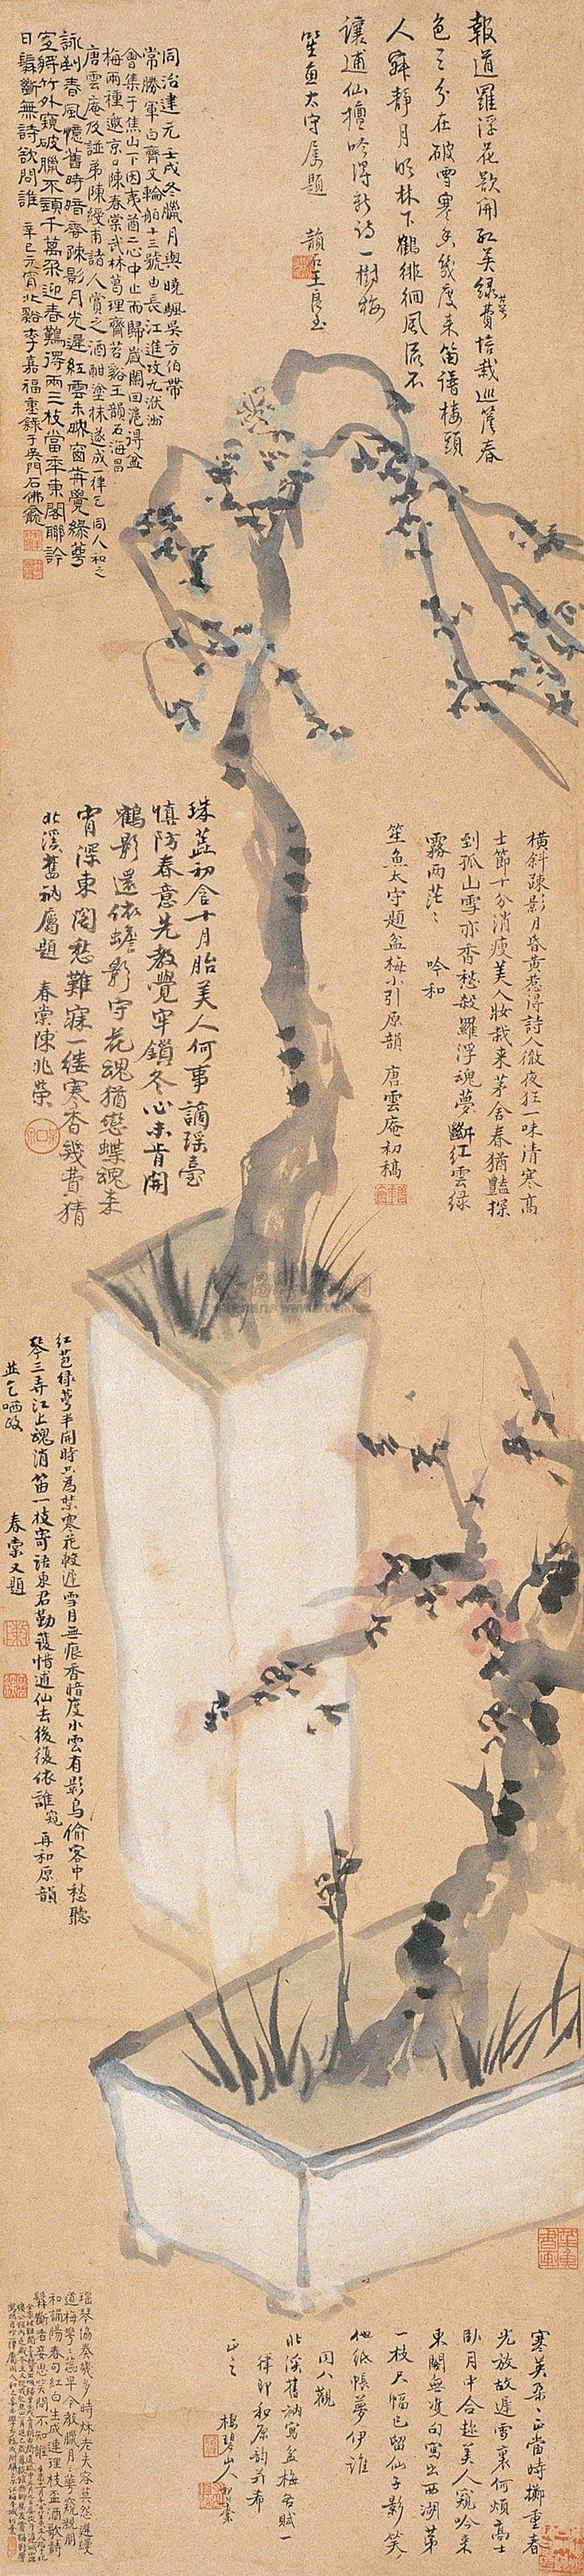 報道羅浮花欲開紅英綠萼費培栽巡簷春
色三分在破雪寒香幾度来笛譜樓頭
人寂靜月明林下鶴徘徊風流不
讓逋仙擅吟得新詩一樹梅
笙魚太守属題 韻石王良玉
同治建元壬戌冬臘月與曉颿吴方伯帶
常勝軍白齊文輪船十三號由長江進攻九洑洲
會集于焦山下因夷酋二心中止而歸歲闌回滬得盆
梅兩種邀京口陳春棠武林葛理齋苕谿王韻石海昌
唐雲庵及誼弟陳綬甫諸人賞之酒酣塗抹遂成一律乞同人和之
詠到春風憶舊時暗香疎影月光遲紅雲未映窗前覺綠萼
宜鄰竹外窺破臘不須千萬朵迎春難得兩三枝當年東閣聯吟
日髯斷無詩欲問誰 辛巳元宵北谿李嘉福重錄于吴門石佛龕
橫斜疎影月昏黄惹得詩人徹夜狂一味清寒高
士節十分消瘦美人妝栽来茅舍春猶豔探
到孤山雪亦香愁殺羅浮魂夢斷紅雲綠
霧兩茫茫 吟和
笙魚太守題盆梅小引原韻 唐雲庵初槁
珠蕊初含十月胎美人何事謫瑶臺
慎防春意先教覺牢鎖冬心未肯開
鶴影還依蟾影守花魂猶戀蝶魂来
宵深東閣愁難寐一縷寒香幾費猜
北溪舊衲屬題 春棠陳兆榮
紅苞綠萼半開時只為禁寒花較遲雪月無痕香暗度水雲有影鳥偷窺客中愁聽
琴三弄江上魂消笛一枝寄語東君勤護惜逋仙去後復依誰 再和原韻
并乞哂政 春棠又題
寒英朵朵正當時擲重春
光放故遲雪裏何煩高士
臥月中合趁美人窺吟来
東閣無雙句寫出西湖第
一枝尺幅已留仙子影笑
他紙帳夢伊誰
同人觀
北溪舊衲寫盆梅各賦一
律即和原韵并希
正之
瑶琴協奏幾多時林老夫容莫怨遲縵
道梅萼蕊早含教臘月萼窺親朋
和誦陽春句紅白生成連理枝盃酒歌詩